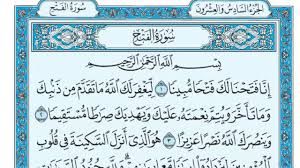 الجزء السادس والعشرون
سورة الفتح
سورة الفتح
بسم الله الرحمن الرحيم
إِنَّا فَتَحْنَا لَكَ فَتْحًا مُّبِينًا ١ لِّيَغْفِرَ لَكَ اللَّهُ مَا تَقَدَّمَ مِن ذَنۢبِكَ
وَمَا تَأَخَّرَ وَيُتِمَّ نِعْمَتَهُ عَلَيْكَ وَيَهْدِيَكَ صِرَاطًا مُّسْتَقِيمًا ٢
وَيَنصُرَكَ اللَّهُ نَصْرًا عَزِيزًا ٣ هُوَ الَّذِي أَنزَلَ السَّكِينَةَ فِي قُلُوبِ